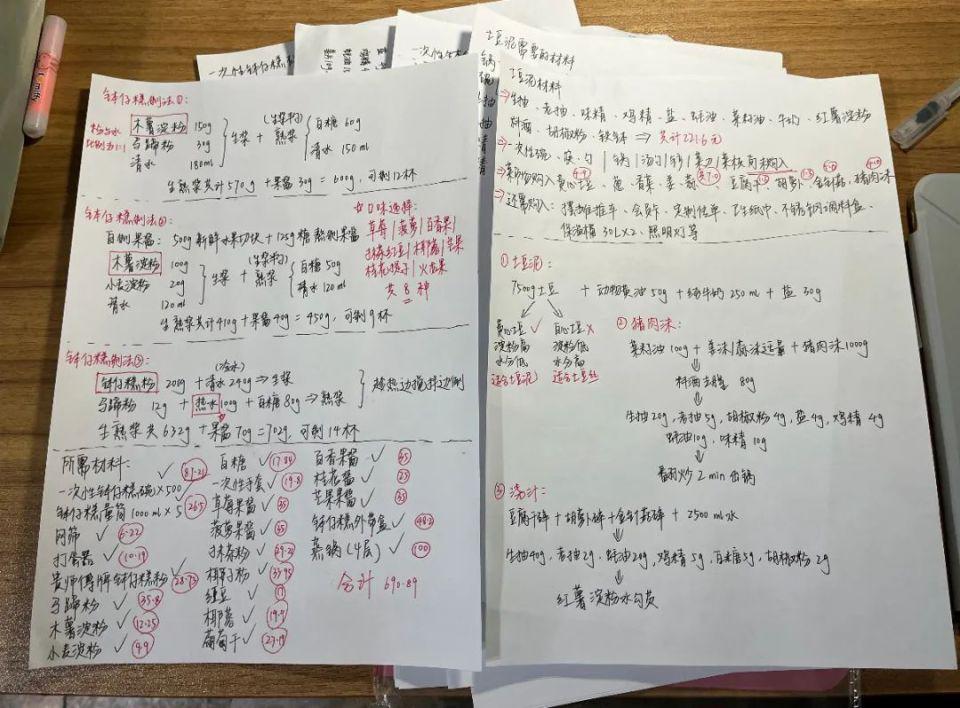 钵仔糕制法①:
粉与水
比例为1:1
木薯淀粉 150g
马蹄粉 30g
清水 180ml
生浆 + 熟浆
(生浆中勺)
白糖 60g
清水 150ml
生熟浆共计570g + 果酱30g = 600g, 可制12杯
钵仔糕制法②:
自制果酱: 500g新鲜水果切块 + 125g糖 熬制果酱
木薯淀粉 100g
小麦淀粉 20g
清水 120ml
生浆 + 熟浆
白糖 50g
清水 120ml
生熟浆共计410g + 果酱40g = 450g, 可制9杯
口味选择:
草莓|菠萝|百香果|
抹茶红豆|椰蓉|芒果
桂花 |火龙果
共8种
钵仔糕制法③:
(冷水)
钵仔糕粉 200g + 清水240g ⇒ 生浆
马蹄粉 12g + 热水100g + 白糖80g ⇒ 熟浆
趁热边搅拌边倒
生熟浆共632g + 果酱70g = 702g, 可制14杯
所需材料:
一次性钵仔糕碗×500 ✓ 87.21
钵仔糕量筒1000ml×5 26.5
网筛 ✓ 6.22
打蛋器 ✓ 10.19
贵师傅牌钵仔糕粉 ✓ 28.73
马蹄粉 ✓ 35.8
木薯淀粉 ✓ 12.25
小麦淀粉 ✓ 9.9
白糖 ✓ 17.84
一次性手套 ✓ 19.8
草莓果酱 ✓ 35
菠萝果酱 ✓ 35
抹茶粉 ✓ 29.21
椰子粉 ✓ 33.95
红豆 ✓ 17
椰蓉 ✓ 19.9
葡萄干 ✓ 23.19
百香果酱 ✓ 45
桂花酱 ✓ 23
芒果果酱 ✓ 35
钵仔糕外带盒 ✓ 48.2
蒸锅(4层) ✓ 100
合计 690.89
土豆泥需要的材料
土豆泥材料
⇒生抽、老抽、味精、鸡精、盐、蚝油、菜籽油、牛奶、红薯淀粉
料酒、胡椒粉、 ⇒ 共计221.6元
⇒一次性碗、筷、勺|锅|汤勺|铲|菜刀|菜板 可未购入
⇒菜场购入黄心土豆、葱、香菜、姜、蒜、豆腐干、胡萝卜、金针菇、猪肉沫
⇒还需购入: 摆摊推车、会员卡、定制传单、卫生纸巾、不锈钢调料盒、
保温桶30L×2、照明灯等
①土豆泥:
7500g土豆 + 动物黄油50g + 纯牛奶250ml + 盐30g
黄心土豆 ✓
淀粉高
水分低
适合土豆泥
白心土豆 ×
淀粉低
水分高
适合土豆丝
②猪肉沫:
菜籽油100g + 姜沫/蒜沫适量 + 猪肉沫1000g
料酒去腥 80g
生抽20g, 老抽5g, 胡椒粉4g, 盐4g, 鸡精4g
蚝油10g, 味精10g
翻炒2min出锅
③浇汁:
豆腐干碎 + 胡萝卜碎 + 金针菇碎 + 2500ml水
生抽40g, 老抽2g, 蚝油20g, 鸡精5g, 白糖5g, 胡椒粉2g
红薯淀粉水勾芡